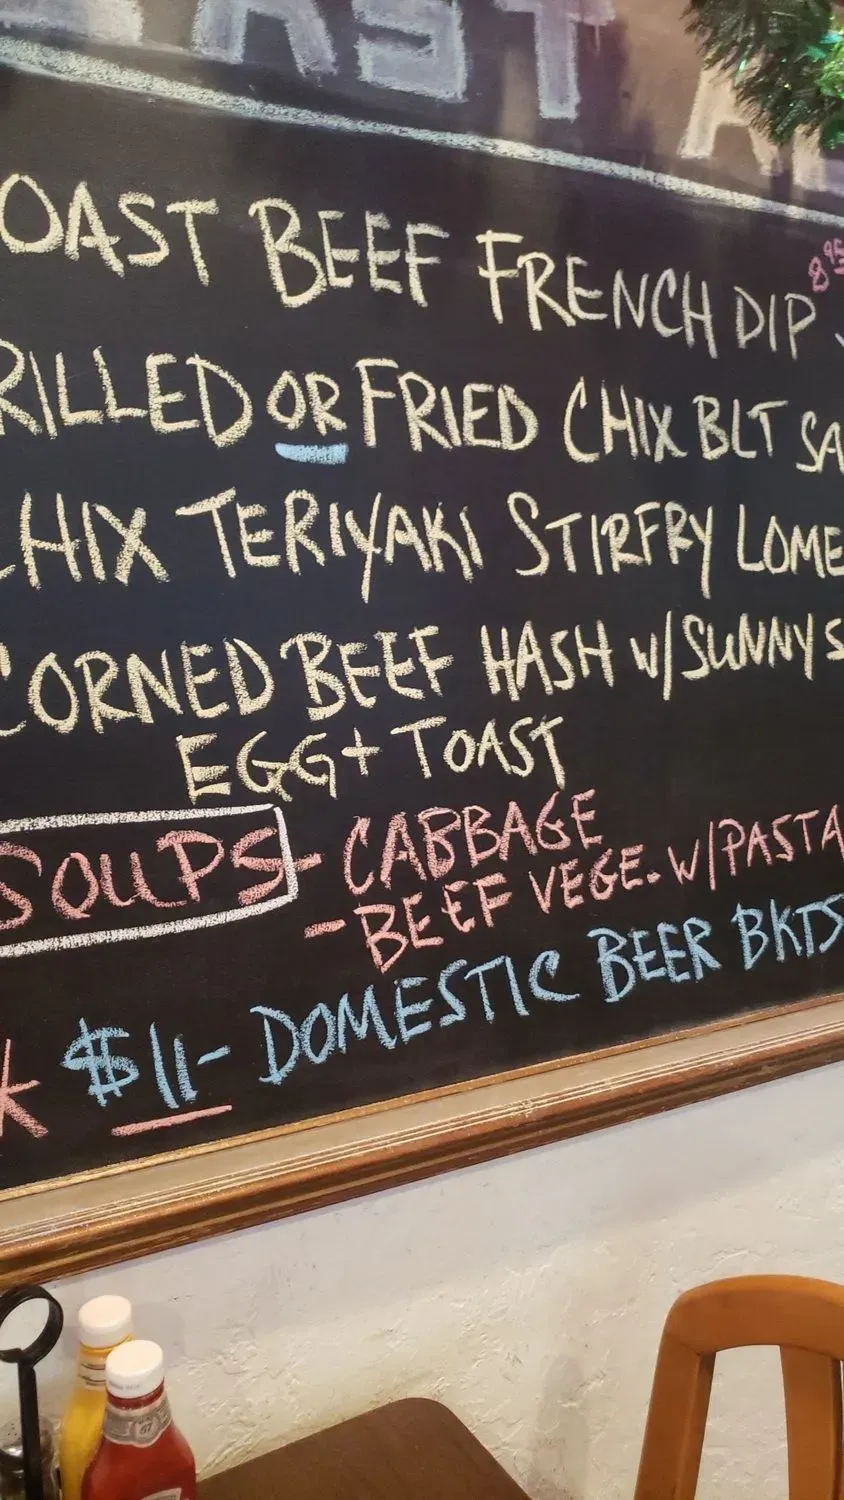 AST
OAST BEEF FRENCH DIP 8.95
RILLED OR FRIED CHIX BLT SA
CHIX TERIYAKI STIRFRY LOME
CORNED BEEF HASH W/SUNNY S
EGG + TOAST
SOUPS - CABBAGE
- BEEF VEGE. W/PASTA
* $11- DOMESTIC BEER BKTS
57